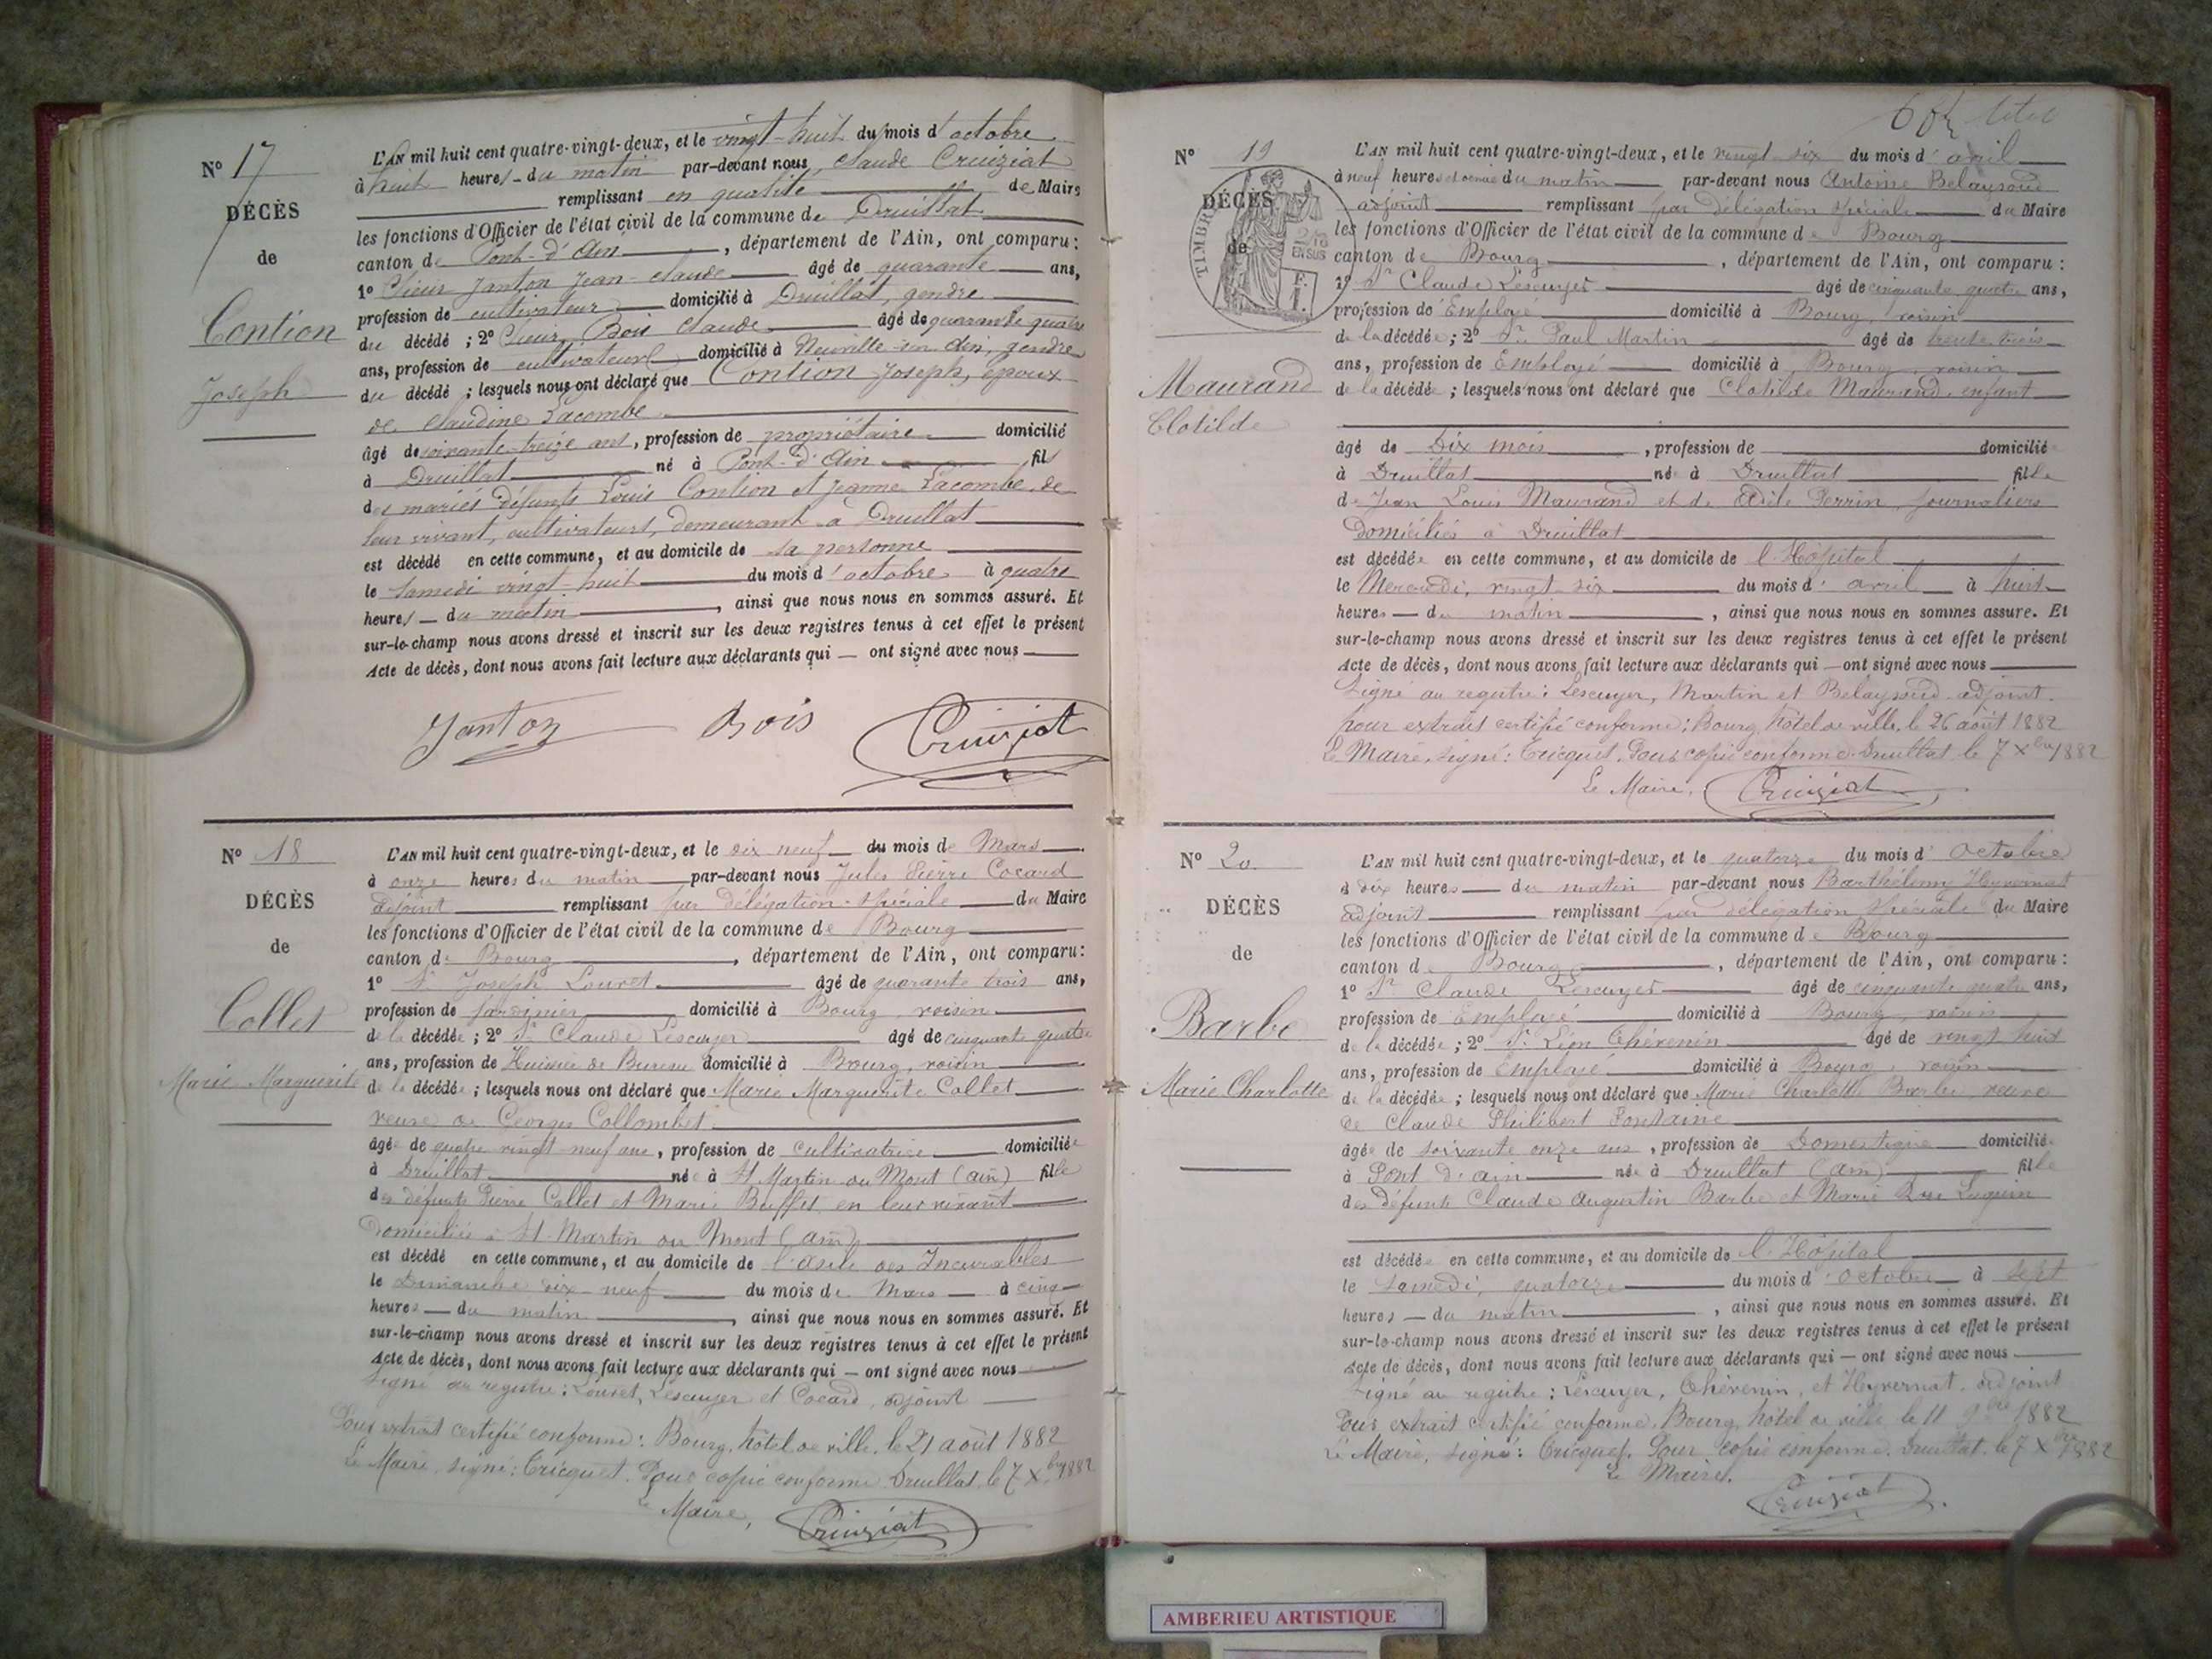 N° 17
DÉCÈS
de
Contion
Joseph
L'AN mil huit cent quatre-vingt-deux, et le vingt-huit du mois d'octobre
à huit heures du matin par-devant nous, Claude Cruiziat
remplissant en qualité de Maire
les fonctions d'Officier de l'état civil de la commune de Druillat
canton de Pont-d'Ain, département de l'Ain, ont comparu :
1° Sieur Janton Jean-Claude âgé de quarante ans,
profession de cultivateur domicilié à Druillat, gendre
du décédé ; 2° Sieur Bois Claude âgé de quarante quatre
ans, profession de cultivateur domicilié à Neuville-sur-Ain, gendre
du décédé ; lesquels nous ont déclaré que Contion Joseph, époux
de Claudine Lacombe
âgé de soixante-treize ans, profession de propriétaire domicilié
à Druillat né à Pont-d'Ain fils
des mariés défunts Louis Contion et Jeanne Lacombe, de
leur vivant, cultivateurs, demeurant à Druillat
est décédé en cette commune, et au domicile de sa personne
le samedi vingt-huit du mois d'octobre à quatre
heures du matin, ainsi que nous nous en sommes assuré. Et
sur-le-champ nous avons dressé et inscrit sur les deux registres tenus à cet effet le présent
Acte de décès, dont nous avons fait lecture aux déclarants qui ont signé avec nous
Janton Bois Cruiziat
N° 18
DÉCÈS
de
Collet
Marie Marguerite
L'AN mil huit cent quatre-vingt-deux, et le dix neuf du mois de Mars
à onze heures du matin par-devant nous Jules Pierre Cocard
adjoint remplissant par délégation spéciale du Maire
les fonctions d'Officier de l'état civil de la commune de Bourg
canton de Bourg, département de l'Ain, ont comparu :
1° Sr Joseph Louvet âgé de quarante trois ans,
profession de jardinier domicilié à Bourg, voisin
de la décédée ; 2° Sr Claude Lescuyer âgé de cinquante quatre
ans, profession de Huissier de Bureau domicilié à Bourg, voisin
de la décédée ; lesquels nous ont déclaré que Marie Marguerite Collet
veuve de Georges Collombet
âgée de quatre vingt neuf ans, profession de cultivatrice domiciliée
à Druillat née à St Martin du Mont (ain) fille
des défunts Pierre Collet et Marie Buffet, en leur vivant
domiciliés à St Martin du Mont (ain)
est décédé en cette commune, et au domicile de l'asile des Incurables
le Dimanche dix-neuf du mois de Mars à cinq
heures du matin, ainsi que nous nous en sommes assuré. Et
sur-le-champ nous avons dressé et inscrit sur les deux registres tenus à cet effet le présent
Acte de décès, dont nous avons fait lecture aux déclarants qui ont signé avec nous
Signé au registre : Louvet, Lescuyer et Cocard, adjoint
Pour extrait certifié conforme : Bourg, hôtel de ville, le 21 août 1882
Le Maire, signé : Tricquet. Pour copie conforme Druillat, le 7 Xbre 1882
Le Maire, Cruiziat
N° 19
DÉCÈS
de
TIMBRE
2/10
EN SUS
F.
1.
Maurand
Clotilde
L'AN mil huit cent quatre-vingt-deux, et le vingt six du mois d'avril
à neuf heures et demie du matin par-devant nous Antoine Belaysoud
adjoint remplissant par délégation spéciale du Maire
les fonctions d'Officier de l'état civil de la commune de Bourg
canton de Bourg, département de l'Ain, ont comparu :
1° Sr Claude Lescuyer âgé de cinquante quatre ans,
profession de Employé domicilié à Bourg, voisin
de la décédée ; 2° Sr Paul Martin âgé de trente trois
ans, profession de Employé domicilié à Bourg, voisin
de la décédée ; lesquels nous ont déclaré que Clotilde Maurand, enfant
âgé de Dix mois, profession de domicilié
à Druillat née à Druillat fille
de Jean Louis Maurand et de Adèle Perrin, journaliers
domiciliés à Druillat
est décédée en cette commune, et au domicile de l'Hôpital
le Mercredi, vingt six du mois d'avril à huit
heures du matin, ainsi que nous nous en sommes assuré. Et
sur-le-champ nous avons dressé et inscrit sur les deux registres tenus à cet effet le présent
Acte de décès, dont nous avons fait lecture aux déclarants qui ont signé avec nous
Signé au registre : Lescuyer, Martin et Belaysoud adjoint.
Pour extrait certifié conforme : Bourg, hôtel de ville, le 26 août 1882
Le Maire, signé : Tricquet. Pour copie conforme Druillat le 7 Xbre 1882
Le Maire, Cruiziat
N° 20
DÉCÈS
de
Barbe
Marie Charlotte
L'AN mil huit cent quatre-vingt-deux, et le quatorze du mois d'Octobre
à dix heures du matin par-devant nous Barthélemy Hyvernat
adjoint remplissant par délégation spéciale du Maire
les fonctions d'Officier de l'état civil de la commune de Bourg
canton de Bourg, département de l'Ain, ont comparu :
1° Sr Claude Lescuyer âgé de cinquante quatre ans,
profession de Employé domicilié à Bourg, voisin
de la décédée ; 2° Sr Léon Thévenin âgé de vingt huit
ans, profession de Employé domicilié à Bourg, voisin
de la décédée ; lesquels nous ont déclaré que Marie Charlotte Barbe veuve
de Claude Philibert Fontaine
âgée de soixante onze ans, profession de Domestique domiciliée
à Pont d'ain née à Druillat (ain) fille
des défunts Claude Augustin Barbe et Marie
est décédée en cette commune, et au domicile de l'Hôpital
le samedi, quatorze du mois d'octobre à sept
heures du matin, ainsi que nous nous en sommes assuré. Et
sur-le-champ nous avons dressé et inscrit sur les deux registres tenus à cet effet le présent
Acte de décès, dont nous avons fait lecture aux déclarants qui ont signé avec nous
Signé au registre : Lescuyer, Thévenin, et Hyvernat, adjoint
Pour extrait certifié conforme, Bourg, hôtel de ville le 11 9bre 1882
Le Maire, signé : Tricquet. Pour copie conforme. Druillat, le 7 Xbre 1882
Le Maire,
Cruiziat
AMBERIEU ARTISTIQUE